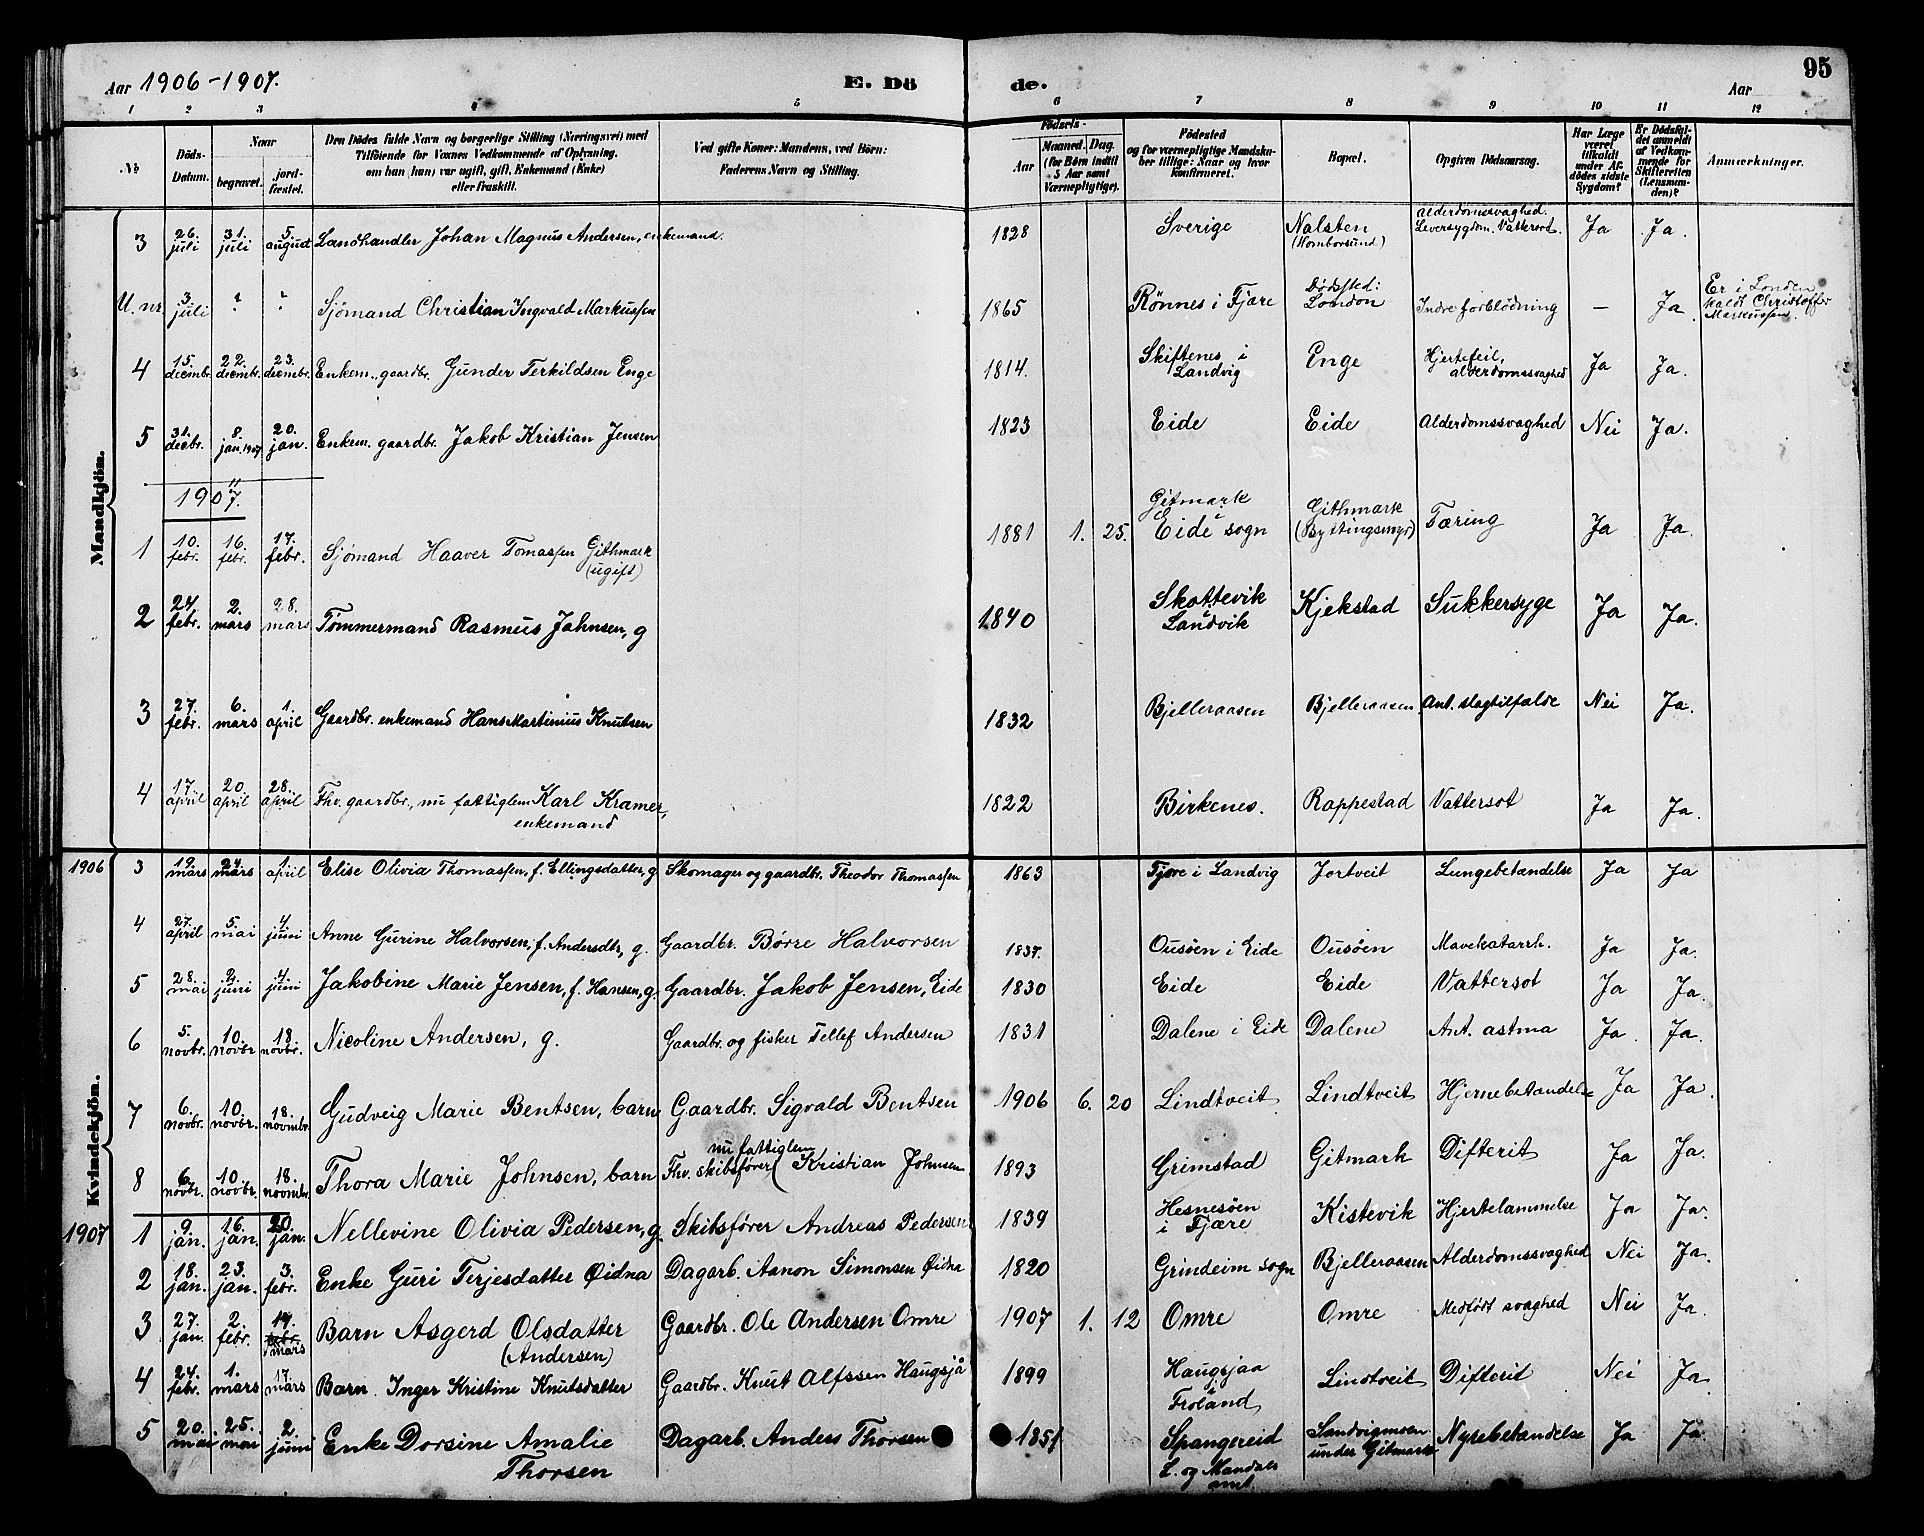 Aar 1906-1907. E. Dö de. Aar 95
1 2 3 4 5 6 7 8 9 10 11 12
No
Döds-Datum.
Naar begravet. jord-fæstet.
Den Dödes fulde Navn og borgerlige Stilling (Næringsvei) med Tilföiende for Voxnes Vedkommende af Oplysning, om han (hun) var ugift, gift, Enkemand (Enke) eller fraskilt.
Ved gifte Koner: Mandens, ved Börn: Faderens Navn og Stilling.
Födsels- Aar Maaned. Dag. (for Börn indtil 5 Aar samt Værnepligtige).
Födested og for værnepligtige Mandskaber tillige: Naar og hvor konfirmeret.
Bopæl.
Opgiven Dödsaarsag.
Har Læge været tilkaldt under Afdödes sidste Sygdom?
Er Dödsfaldet anmeldt af Vedkommende for Skifteretten (Lensmanden)?
Anmærkninger.
Mandkjön.
3 26. juli 31. juli 5. august Landhandler Johan Magnus Andersen, enkemand. 1828 Sverige Nalsten (Homborsund) Alderdomssvaghed. Leversygdom. Vattersot. Ja Ja.
U. nr. 3. juli ? ? Sjömand Christian Ingvald Markussen 1865 Rönnes i Fjære Dødssted: London Indre forblödning — Ja Er i London kaldt Christoffer Markussen.
4 15. decmbr. 22. decmbr. 23. decmbr. Enkem., gaardbr. Gunder Terkildsen Enge 1814. Skiftenes i Landvig Enge Hjertefeil, alderdomssvaghed Ja Ja.
5 31. decbr. 8. jan. 1907. 20. jan. Enkem. gaardbr. Jakob Kristian Jensen 1823 Eide Eide Alderdomssvaghed Nei Ja.
1907.
1 10. febr. 16. febr. 17. febr. Sjömand Haaver Tomassen Githmark (ugift) 1881 1. 25. Gitmark i Eide sogn Githmark (Byttingsmyr) Tæring Ja Ja.
2 24. febr. 2. mars 28. mars Tömmermand Rasmus Johnsen, g 1840 Skottevik i Landvik Kjekstad Sukkersyge Ja Ja.
3 27. febr. 6. mars 1. april Gaardbr. enkemand Hans Martinius Knutsen 1832 Bjelleraasen Bjelleraasen Ant. slagtilfælde Nei Ja.
4 17. april 20. april 28. april Fhv. gaardbr., nu fattiglem Karl Kramer, enkemand 1822 Birkenes. Rappestad Vattersot Ja Ja.
Kvindekjön.
1906 3 19. mars 24. mars 1. april Elise Olivia Thomassen, f. Ellingsdatter, g Skomager og gaardbr. Theodor Thomassen 1863 Fjære i Landvig Jortveit Lungebetændelse Ja Ja
4 27. april 5. mai 4. juni Anne Gurine Halvorsen, f. Andersdtr., g. Gaardbr. Börre Halvorsen 1837. Ousöen i Eide Ousöen Mavekatarrh. Ja Ja.
5 28. mai 2. juni 4. juni Jakobine Marie Jensen, f. Hansen, g. Gaardbr. Jakob Jensen, Eide 1830 Eide Eide Vattersot Ja Ja.
6 5. novbr. 10. novbr 18. novbr. Nicoline Andersen, g. Gaardbr. og fisker Tellef Andersen 1831 Dalene i Eide Dalene Ant. astma Ja. Ja.
7 6. novbr. 10. novbr. 18. novmbr. Gudveig Marie Bentsen, barn Gaardbr. Sigvald Bentsen 1906 6. 20 Lindtveit Lindtveit Hjernebetændelse Ja Ja.
8 6. novbr. 10. novbr. 18. novmbr. Thora Marie Johnsen, barn Fhv. skibsförer (nu fattiglem Kristian Johnsen 1893 Grimstad Gitmark Difterit Ja Ja.
1907 1 9. jan. 16. jan. 20. jan. Nellevine Olivia Pedersen, g. Skibsförer Andreas Pedersen 1839 Hesnesöen i Fjære Kistevik Hjertelammelse Ja Ja.
2 18. jan. 23. jan. 3. febr. Enke Guri Terjesdatter Øidna Dagarb. Aanon Simonsen Øidna 1820 Grindeim sogn Bjelleraasen Alderdomssvaghed Nei Ja.
3 27. jan. 2. febr. 17. mars Barn Asgerd Olsdatter (Andersen) Gaardbr. Ole Andersen Omre 1907 1. 12 Omre Omre Medfødt svaghed Nei Ja.
4 24. febr. 1. mars 17. mars Barn. Inger Kristine Knutsdatter Gaardbr. Knut Alfssen Haugsjå 1899 Haugsjaa i Froland Lindtveit Difterit Nei Ja.
5 20. mai 25. mai 2. juni Enke Dorsine Amalie Thorsen Dagarb. Anders Thorsen 1851 Spangereid L. og Mandals amt. Sandvigmoen under Gitmark Nyrebetændelse Ja Ja.